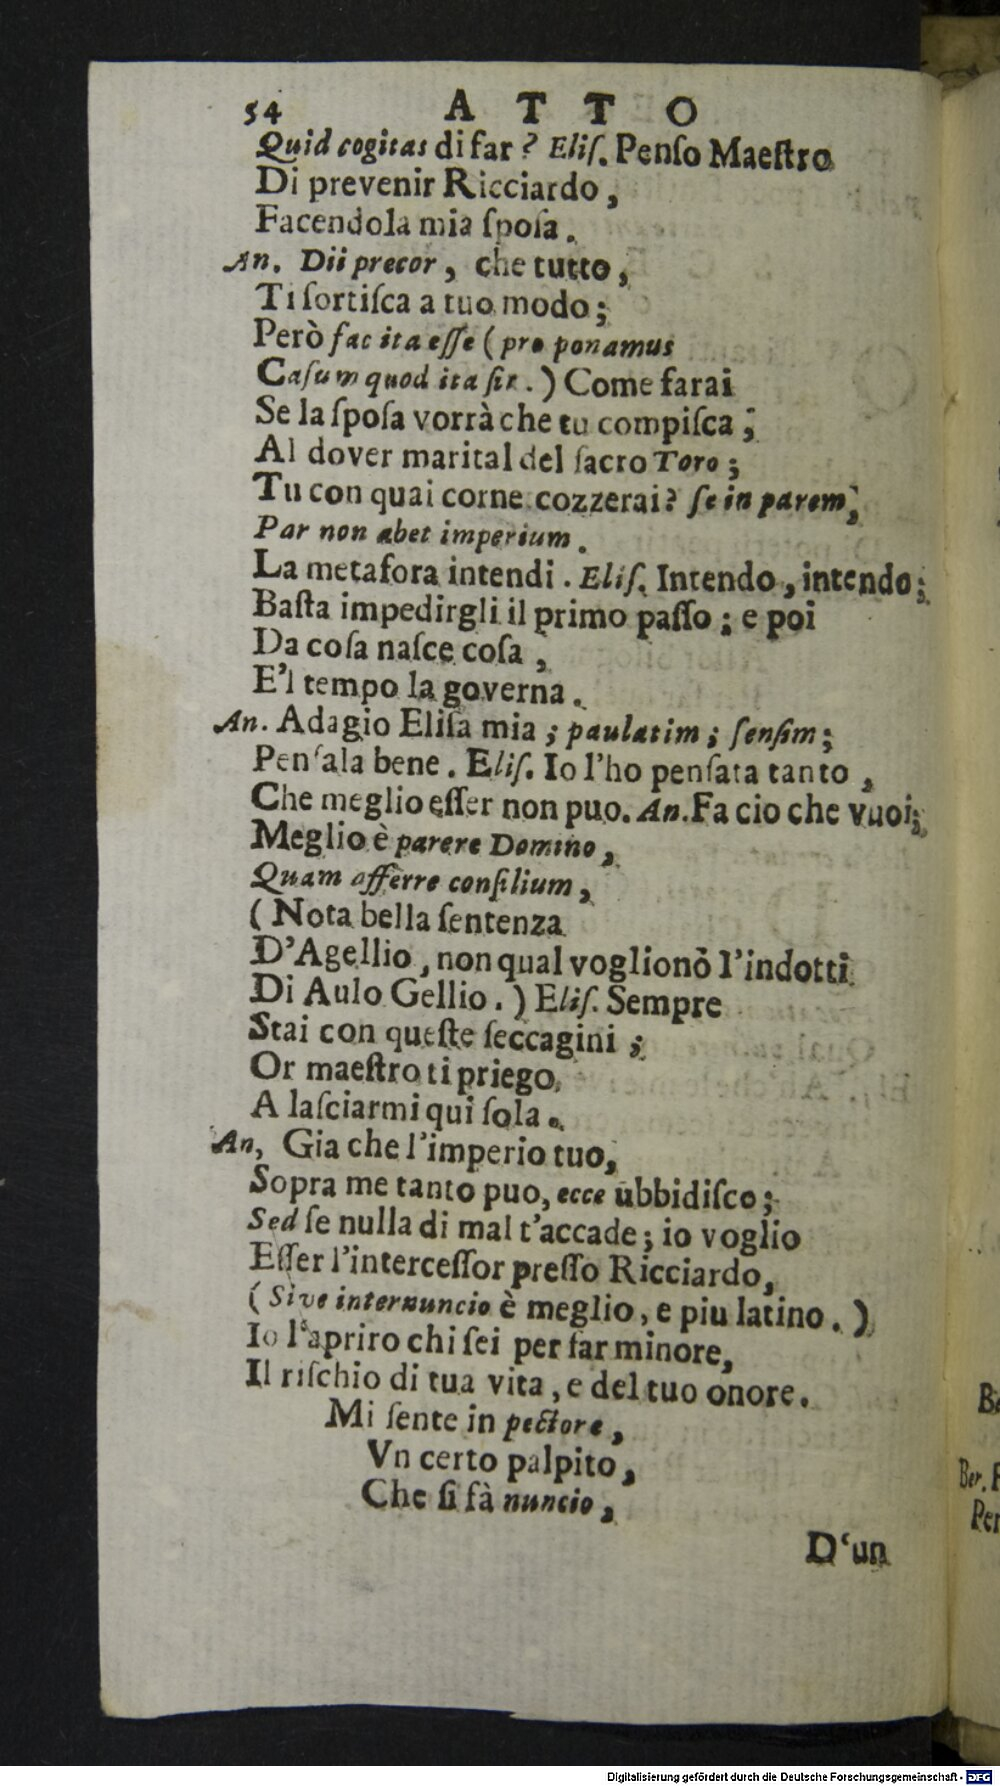 54 ATTO
Quid cogitas di far? Eliſ. Penſo Maeſtro
Di prevenir Ricciardo,
Facendola mia ſpoſa.
An. Dii precor, che tutto,
Ti ſortiſca a tuo modo;
Però fac ita eſſe (pro ponamus
Caſum quod ita ſit.) Come farai
Se la ſpoſa vorrà che tu compiſca;
Al dover marital del ſacro Toro;
Tu con quai corne cozzerai? ſe in parem,
Par non abet imperium.
La metafora intendi. Eliſ. Intendo, intendo;
Baſta impedirgli il primo paſſo; e poi
Da coſa naſce coſa,
E'l tempo la governa.
An. Adagio Eliſa mia; paulatim; ſenſim;
Penſala bene. Eliſ. Io l'ho penſata tanto,
Che meglio eſſer non puo. An. Fa cio che vuoi;
Meglio è parere Domino,
Quam afferre conſilium,
(Nota bella ſentenza
D'Agellio, non qual voglionò l'indotti
Di Aulo Gellio.) Eliſ. Sempre
Stai con queſte ſeccagini;
Or maeſtro ti priego,
A laſciarmi qui ſola.
An, Gia che l'imperio tuo,
Sopra me tanto puo, ecce ubbidiſco;
Sed ſe nulla di mal t'accade; io voglio
Eſſer l'interceſſor preſſo Ricciardo,
(Sive internuncio è meglio, e piu latino.)
Io l'apriro chi ſei per far minore,
Il riſchio di tua vita, e del tuo onore.
Mi ſente in pectore,
Vn certo palpito,
Che ſi fà nuncio,
D'un
Be
Ber. F
Per
Digitalisierung gefördert durch die Deutsche Forschungsgemeinschaft - DFG